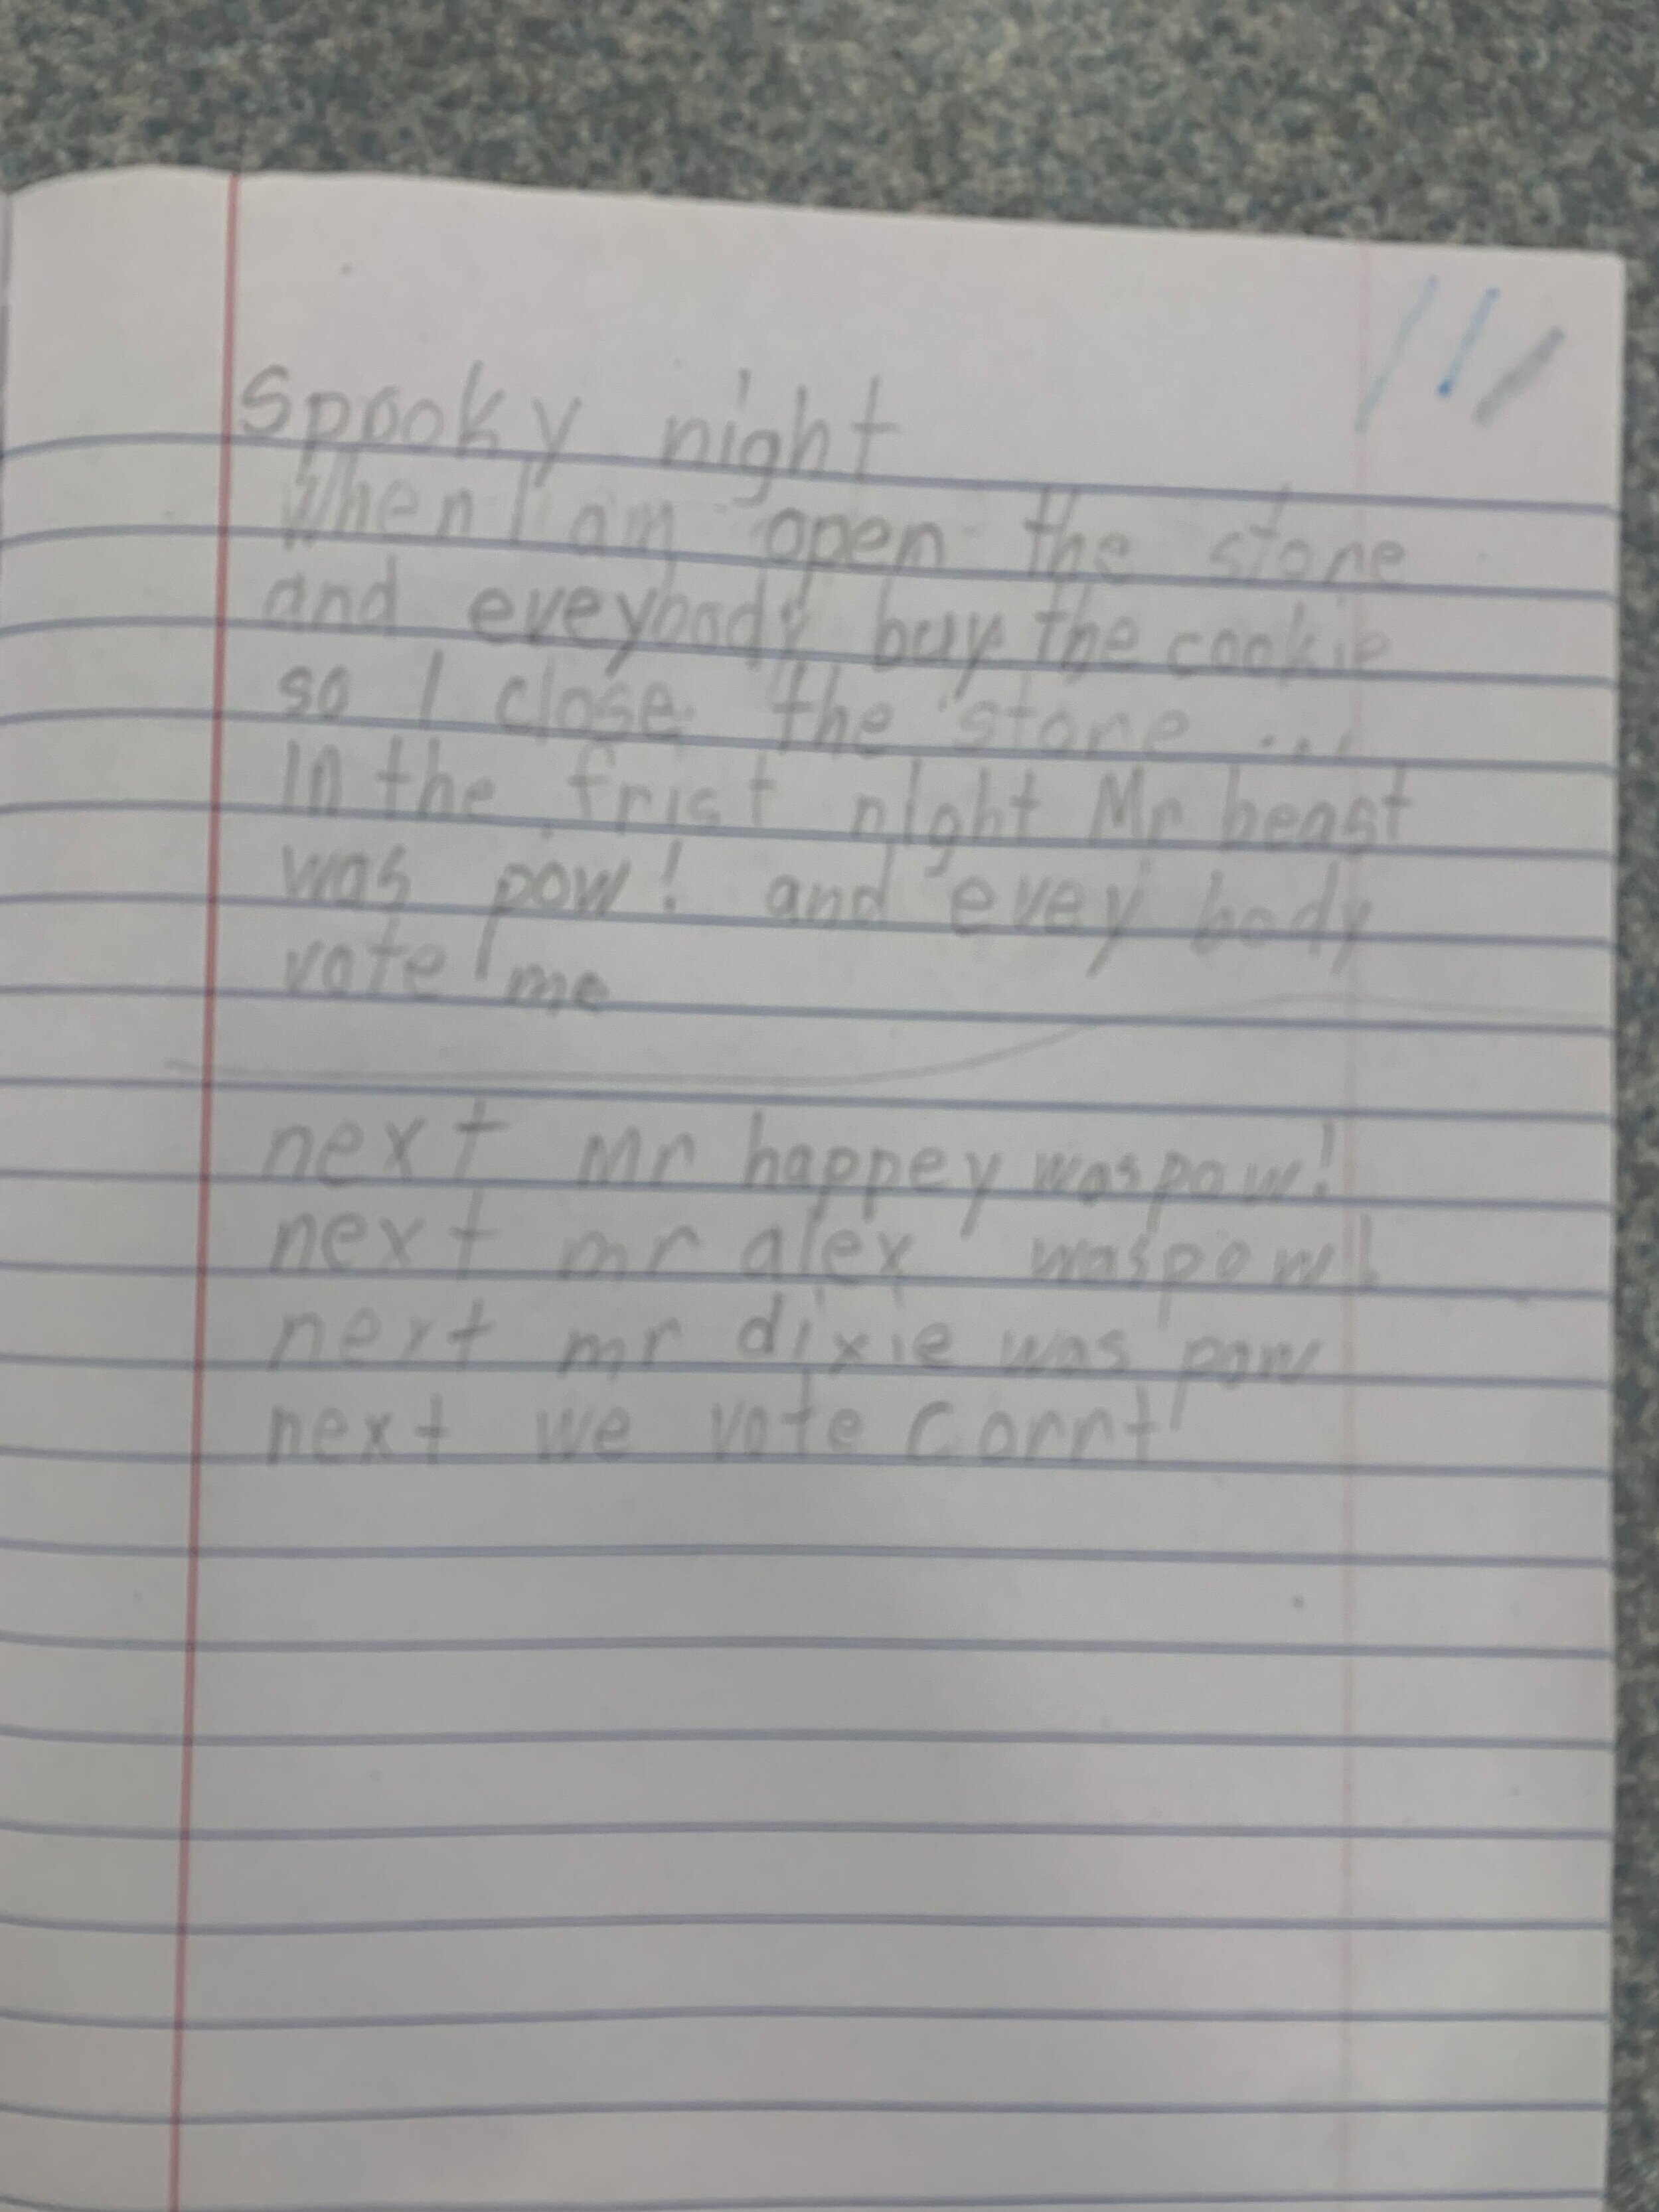 Spooky night
When I am open the store
and eveybody buy the cookie
so I close the store ...
In the frist night Mr beast
was pow! and evey body
vote me
next Mr happey was pow!
next mr alex was pow!
next mr dixie was pow
next we vote Corrt